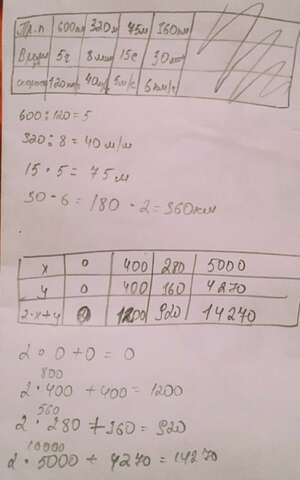 Пр.п 600км 320м 75м 360км
Время 5ч 8мин 15с 30
скорость 120км/ч 40м/м 5м/с 6км/ч
600:120=5
320:8=40м/м
15·5=75м
30·6=180·2=360км
х 0 400 280 5000
у 0 400 360 4270
2·х+у 0 1200 920 14270
2·0+0=0
800
2·400+400=1200
560
2·280+360=920
10000
2·5000+4270=14270